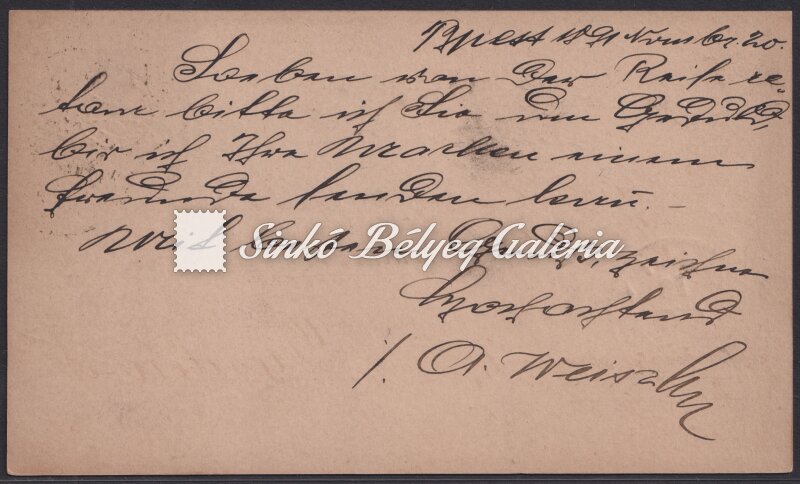 Bpest 1891 Novmbr. 20.
Soeben von der Reise re-
tour bitte ich Sie um Geduld,
bis ich Ihre Marken einem
Freunde senden kann. –
Mit
Sinkó Bélyeg Galéria
zeichne
Hochachtend
A. Weisz